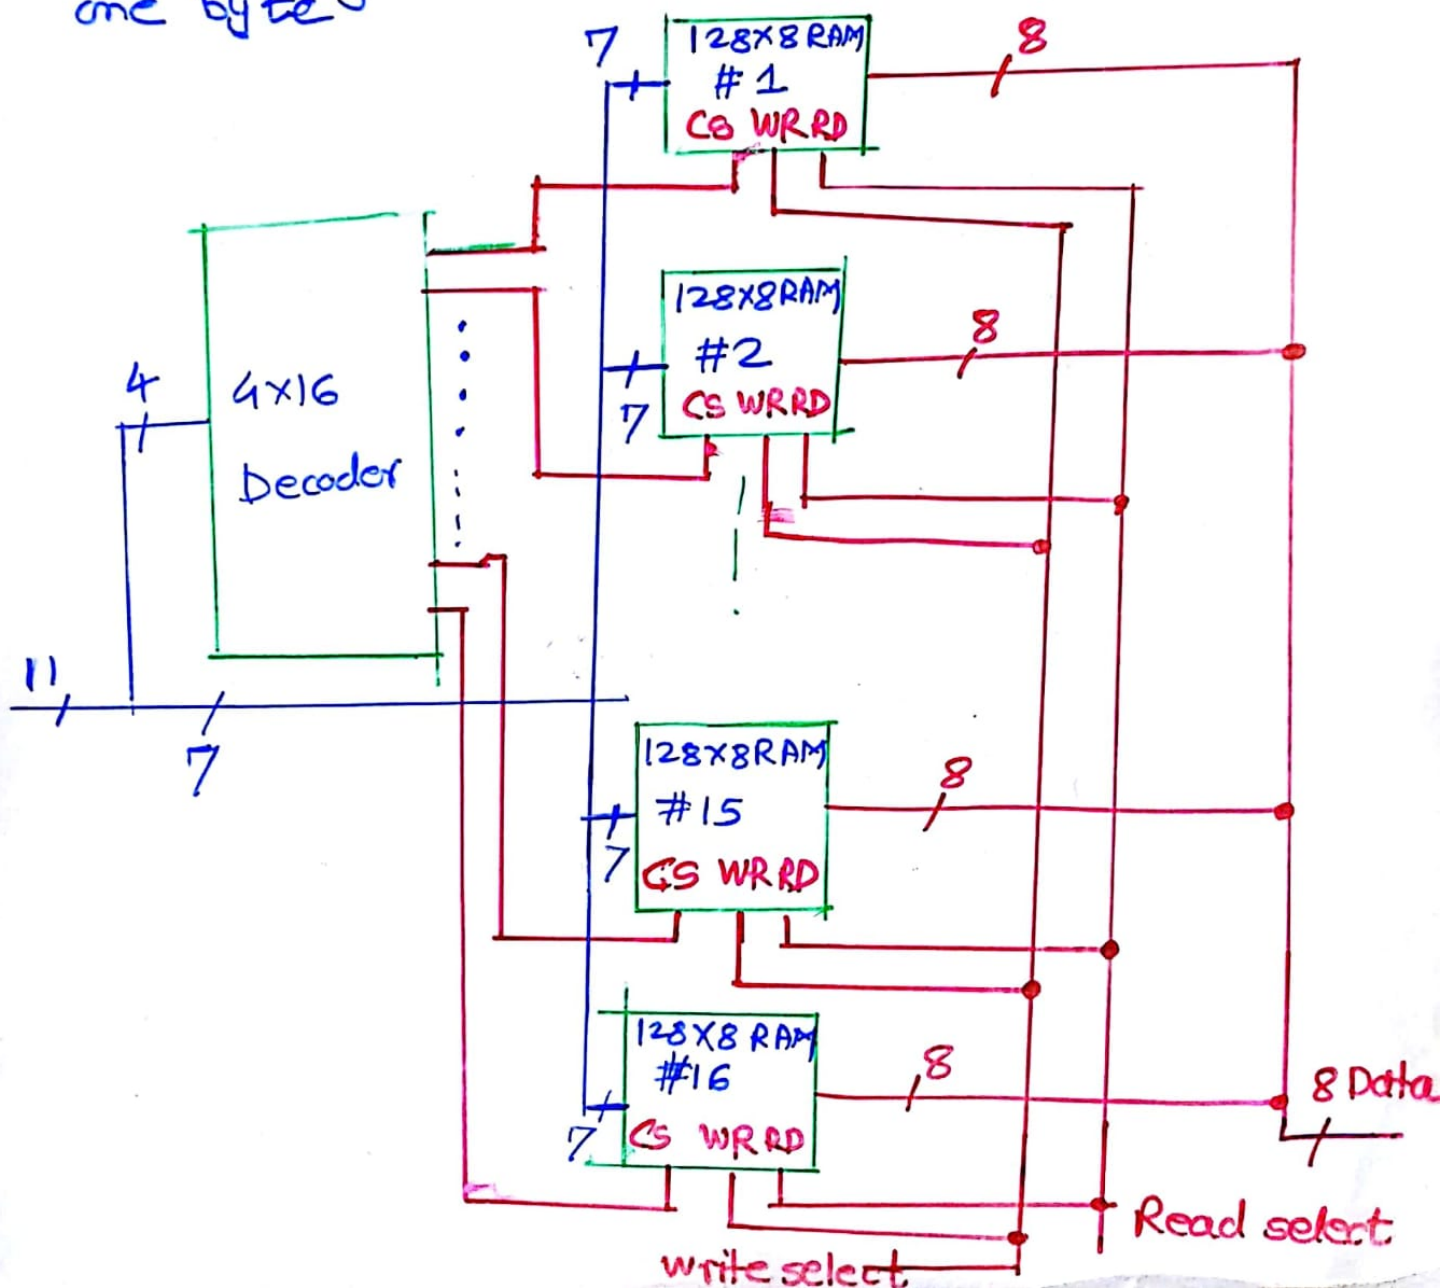 one byte
7
128X8 RAM
#1
CS WR RD
8
128X8RAM
#2
CS WR RD
7
8
4
4X16
Decoder
11
7
128X8RAM
#15
CS WR RD
7
8
128X8 RAM
#16
CS WR RD
7
8
8 Data
Read select
write select